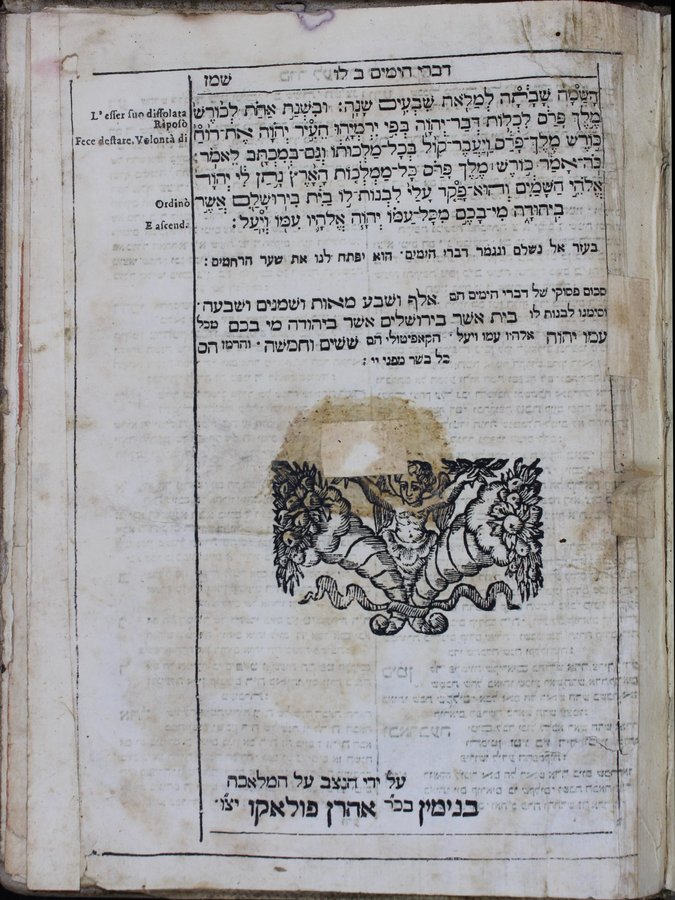 דברי הימים ב לו
שמז
הָשַּׁמָּה שָׁבָתָה לְמַלֹּאת שִׁבְעִים שָׁנָה: וּבִשְׁנַת אַחַת לְכוֹרֶשׁ
מֶלֶךְ פָּרַס לִכְלוֹת דְּבַר־יְהוָה בְּפִי יִרְמְיָהוּ הֵעִיר יְהוָה אֶת־רוּחַ
כּוֹרֶשׁ מֶלֶךְ־פָּרַס וַיַּעֲבֶר־קוֹל בְּכָל־מַלְכוּתוֹ וְגַם־בְּמִכְתָּב לֵאמֹר:
כֹּה־אָמַר כּוֹרֶשׁ ׀ מֶלֶךְ פָּרַס כָּל־מַמְלְכוֹת הָאָרֶץ נָתַן לִי יְהוָה
אֱלֹהֵי הַשָּׁמַיִם וְהוּא־פָקַד עָלַי לִבְנוֹת־לוֹ בַיִת בִּירוּשָׁלַ͏ִם אֲשֶׁר
בִּיהוּדָה מִי־בָכֶם מִכָּל־עַמּוֹ יְהוָה אֱלֹהָיו עִמּוֹ וְיָעַל:
L'esser suo dissolata
Riposò
Fece destare. Volontà di
Ordinò
E ascend.
בעזר אל נשלם ונגמר דברי הימים· הוא יפתח לנו את שער הרחמים:
סכום פסוקי של דברי הימים הם אלף ושבע מאות ושמנים ושבעה·
וסימנו לבנות לו בית אשר בירושלים אשר ביהודה מי בכם מכל
עמו יהוה אלהיו עמו ויעל· הקאפיטולי הם ששים וחמשה· והרמז הס
כל בשר מפני יי:
על ידי הנצב על המלאכה
בנימין בכ״ר אהרן פולאקו יצ״ו·